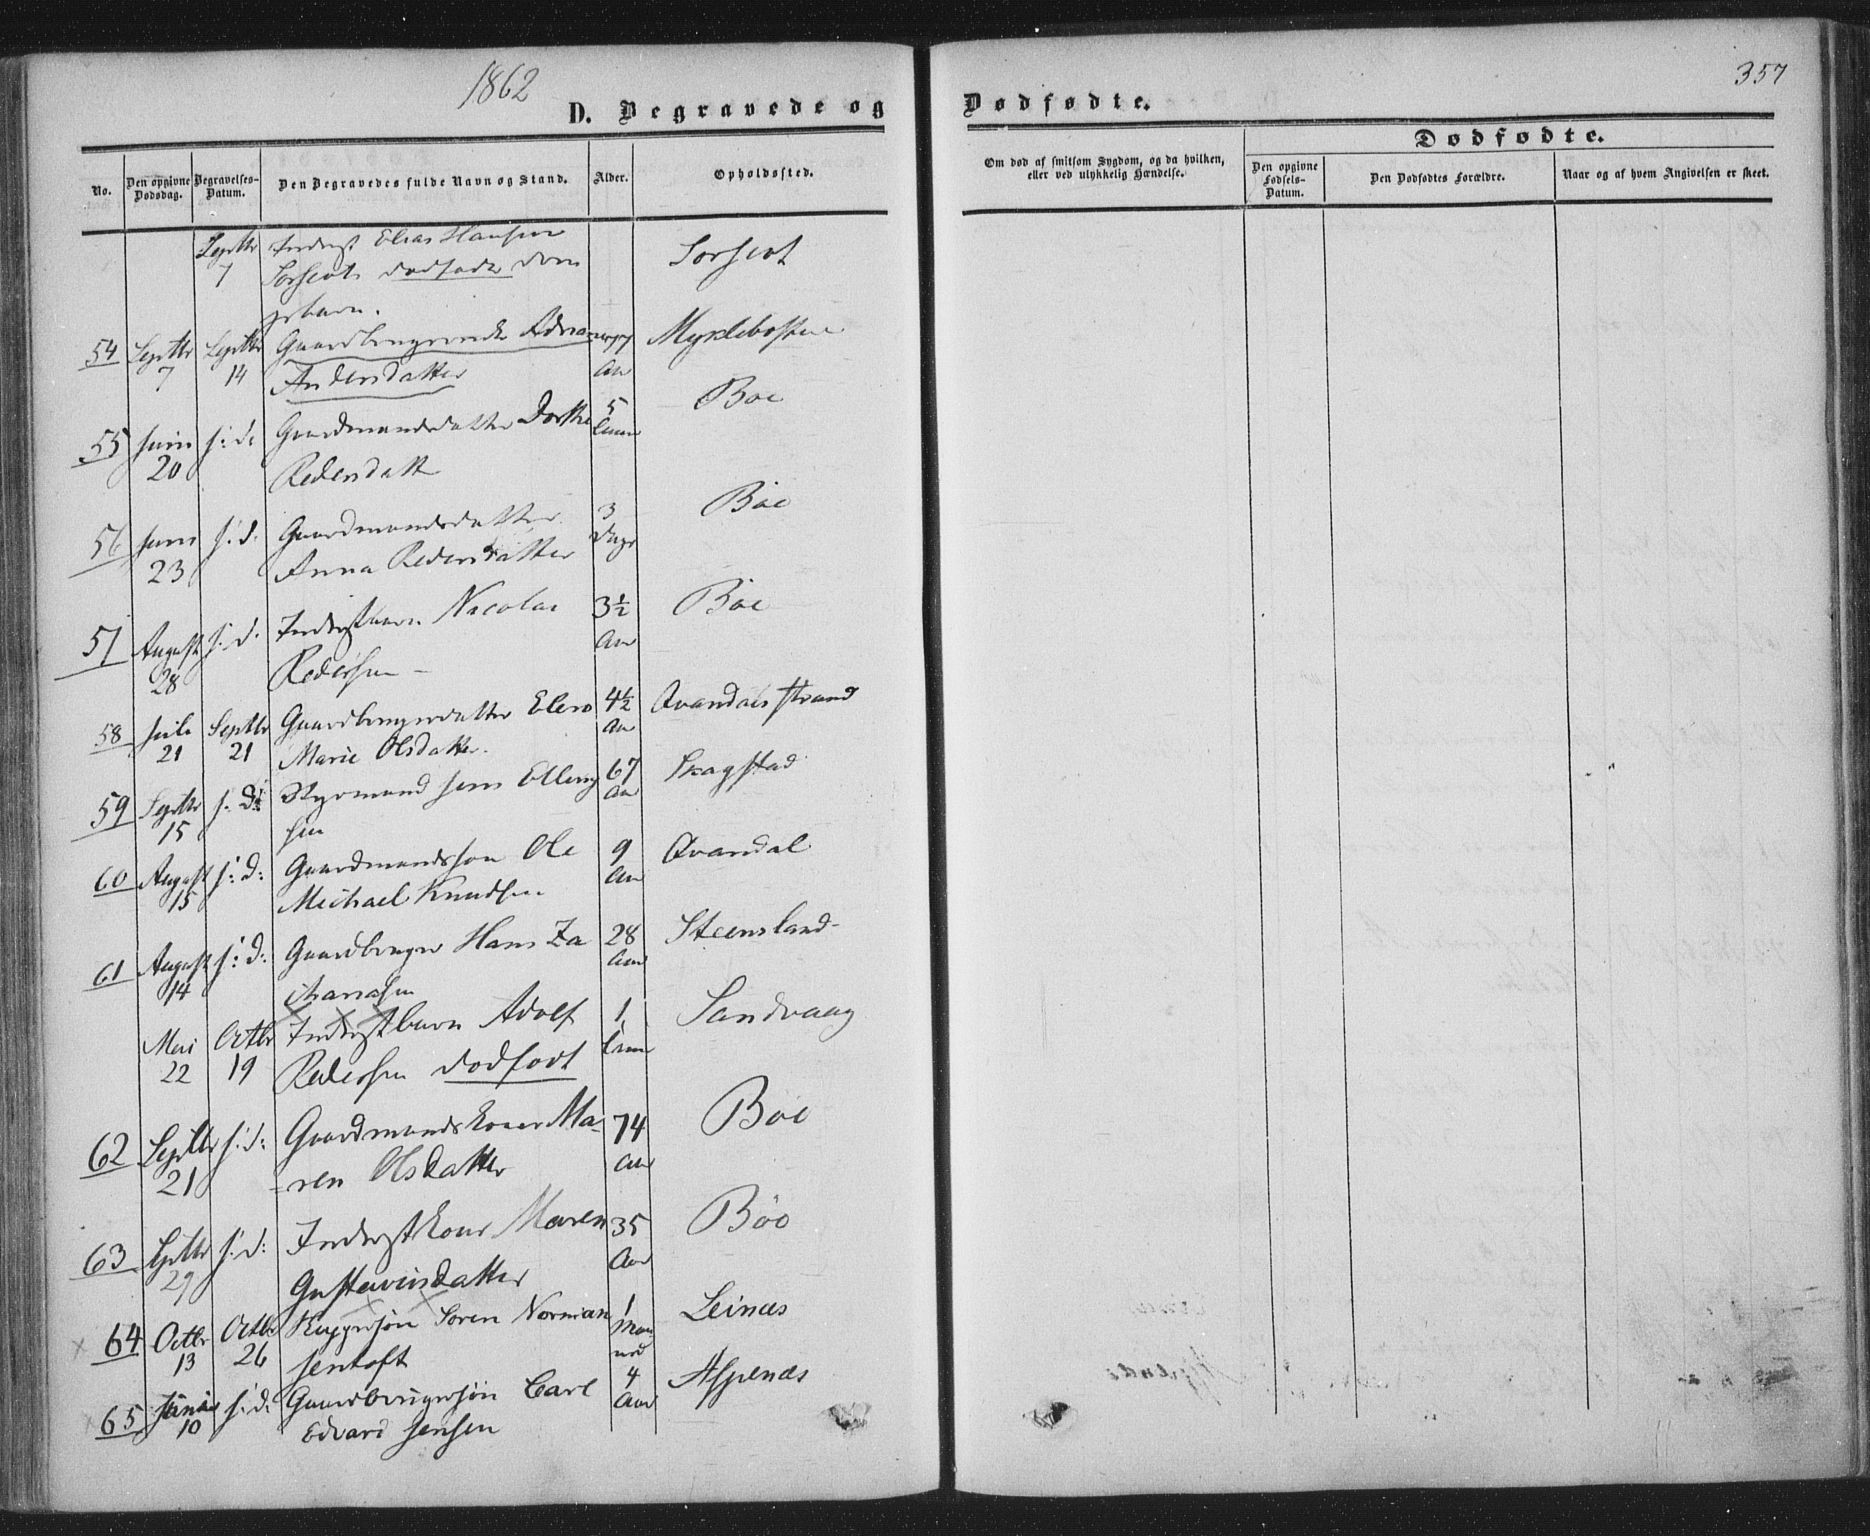 1862
357
D. Begravede og
Dødfødte.
Dødfødte.
No.
Den opgivne Dødsdag.
Begravelses-Datum.
Den Begravedes fulde Navn og Stand.
Alder.
Opholdssted.
Om død af smitsom Sygdom, og da hvilken, eller ved ulykkelig Hændelse.
Den opgivne Fødsels-Datum.
Den Dødfødtes Forældre.
Naar og af hvem Angivelsen er skeet.
Septbr Inderst Elias Hansen
7 dødfødte Sorfiot
54 Septbr Septbr Gaardbrugerenke 77 Myklebostad
7 14 Andersdatter Aar
55 Juni s: d: Gaardmandsdatter Dorthe 5 Bøe
20 Pedersdatt
56 Juni s: d: Gaardmandsdatter 3 Bøe
23 Anna Pedersdatter Dage
57 August s: d: Inderstbarn Nicolai 3½ Bøe
28 Pedersen Aar
58 Juli Septbr Gaardbrugerdatter 4½ Qvandalsstrand
21 21 Marie Olsdatter Aar
59 Septbr s: d: Styrmand Jens Elling 67 Skagstad
15 sen Aar
60 August s: d: Gaardmandssøn Ole 9 Qvandal
15 Michael Knudsen Aar
61 August s: d: Gaardbruger Hans Za 28 Steensland
14 chariasen Aar
Mai Octbr Inderstbarn Adolf 1 Sandvaag
22 19 Pedersen dødfødt
62 Septbr s: d: Gaardmandskone Ma- 74 Bøe
21 -ren Olsdatter Aar
63 Septbr s: d: Inderstkone Maren 35 Bøe
29 Gustavinsdatter Aar
64 Octbr Octbr Søren Norman 1 Leinæs
13 26 Jentoft Maa-ned
65 Juni s: d: Gaardbrugersøn Carl 4 Aspenæs
10 Edvard Jensen Aar